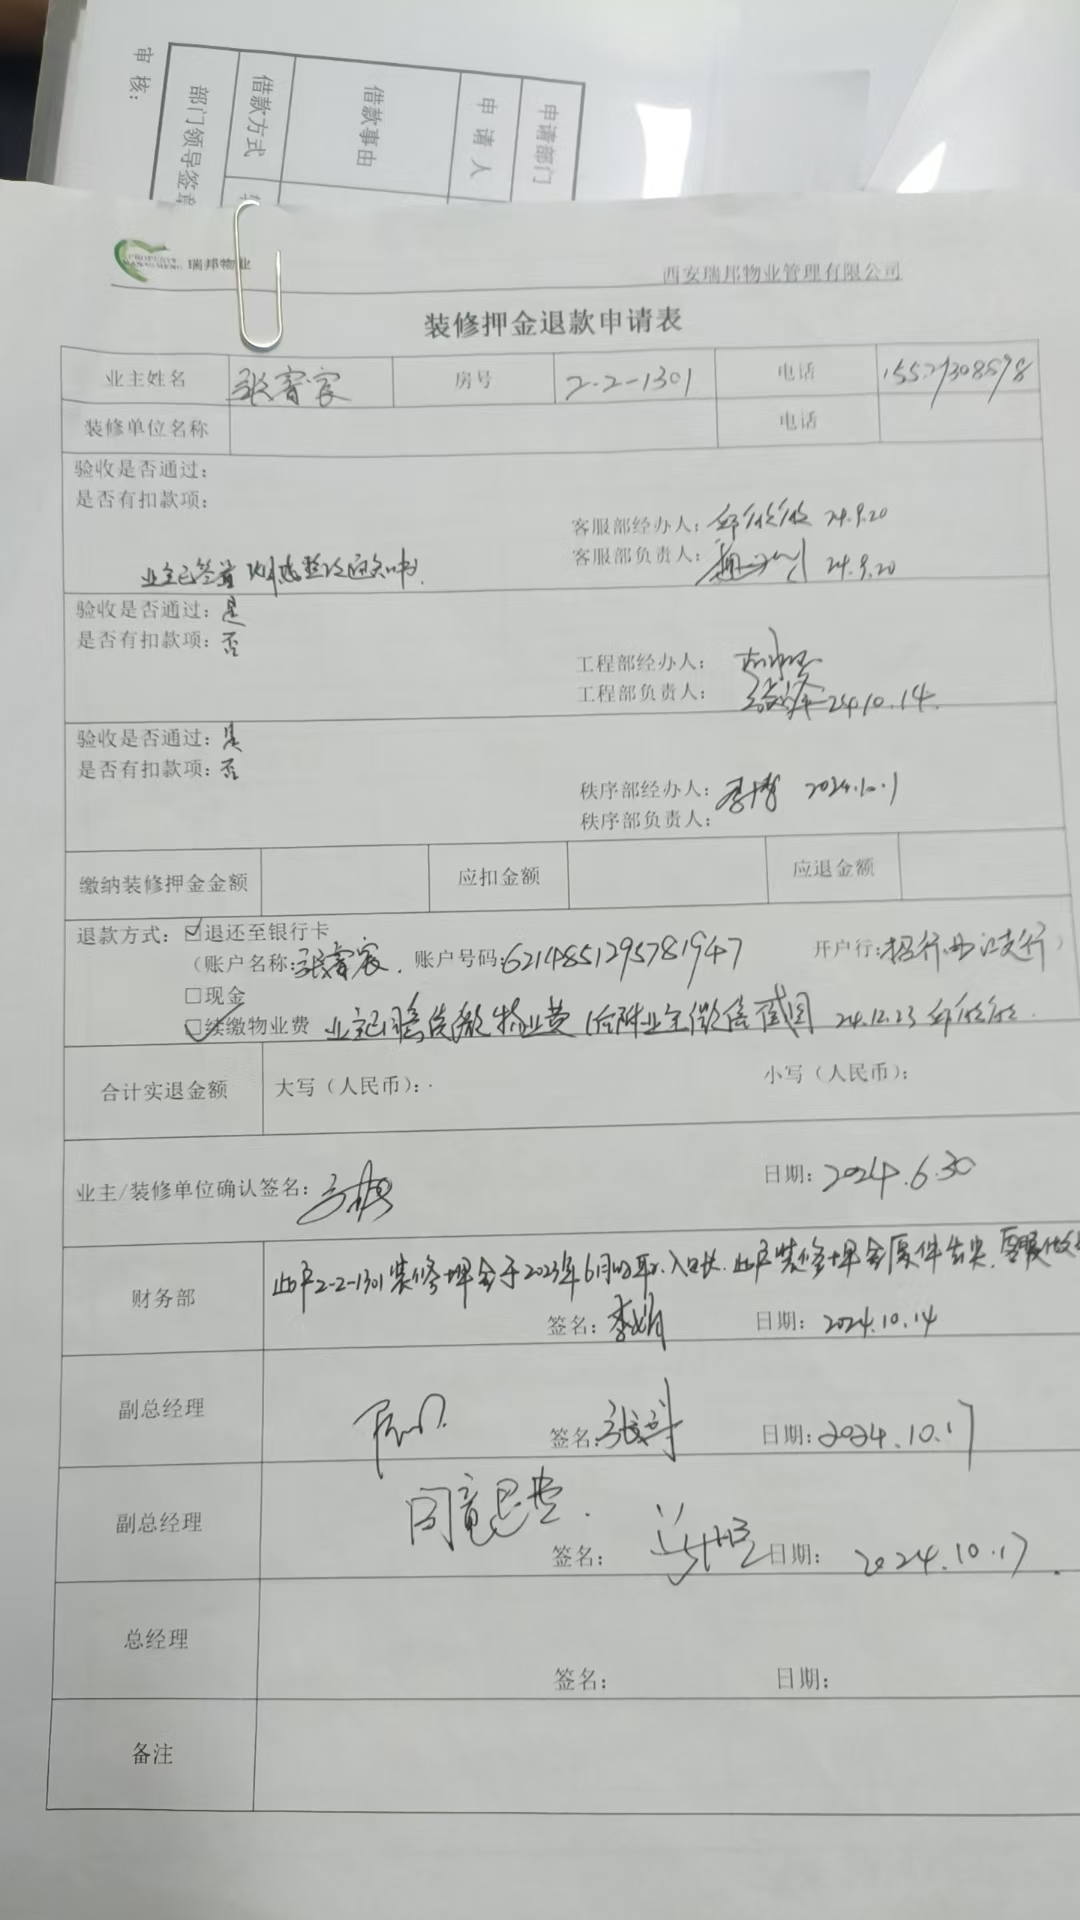 审核:
部门领导签章
借款方式
借款事由
申请人
申请部门
PROPERTY
瑞邦物业
西安瑞邦物业管理有限公司
装修押金退款申请表
业主姓名 张睿宸 房号 2-2-1301 电话
装修单位名称 电话
验收是否通过:
是否有扣款项:
客服部经办人: 24.9.20
客服部负责人: 24.9.20
业主已签署 整改通知书
验收是否通过: 是
是否有扣款项: 否
工程部经办人:
工程部负责人: 24.10.14.
验收是否通过: 是
是否有扣款项: 否
秩序部经办人: 李博 2024.10.1
秩序部负责人:
缴纳装修押金金额 应扣金额 应退金额
退款方式: ☑退还至银行卡
(账户名称: 张睿宸. 账户号码: 6214851295781947 开户行: 招行曲江支行)
□现金
☑续缴物业费 业主已同意续缴物业费 (后附业主微信截图 24.12.23
合计实退金额 大写(人民币): 小写(人民币):
业主/装修单位确认签名: 日期: 2024.6.30
财务部 此户2-2-1301装修押金于2023年6月 此户装修押金原件丢失.
签名: 李娟 日期: 2024.10.14
副总经理 签名: 日期: 2024.10.17
副总经理 同意退费.
签名: 日期: 2024.10.17
总经理
签名: 日期:
备注